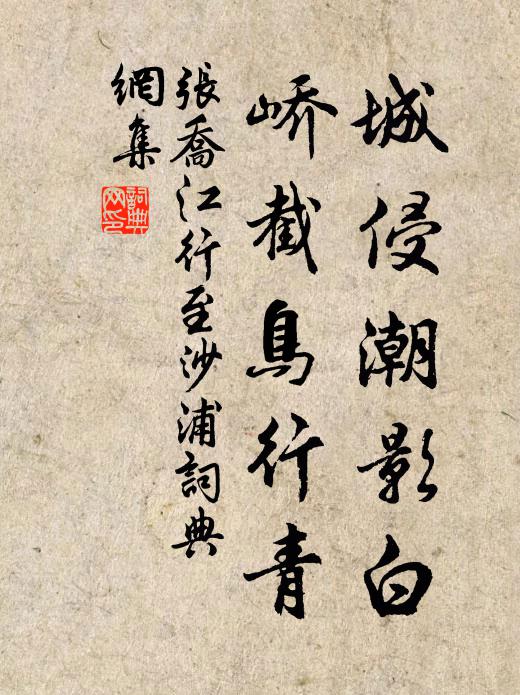 城侵潮影白
峤截鳥行青
張喬江行至沙浦詞典
網集
詞典
网印